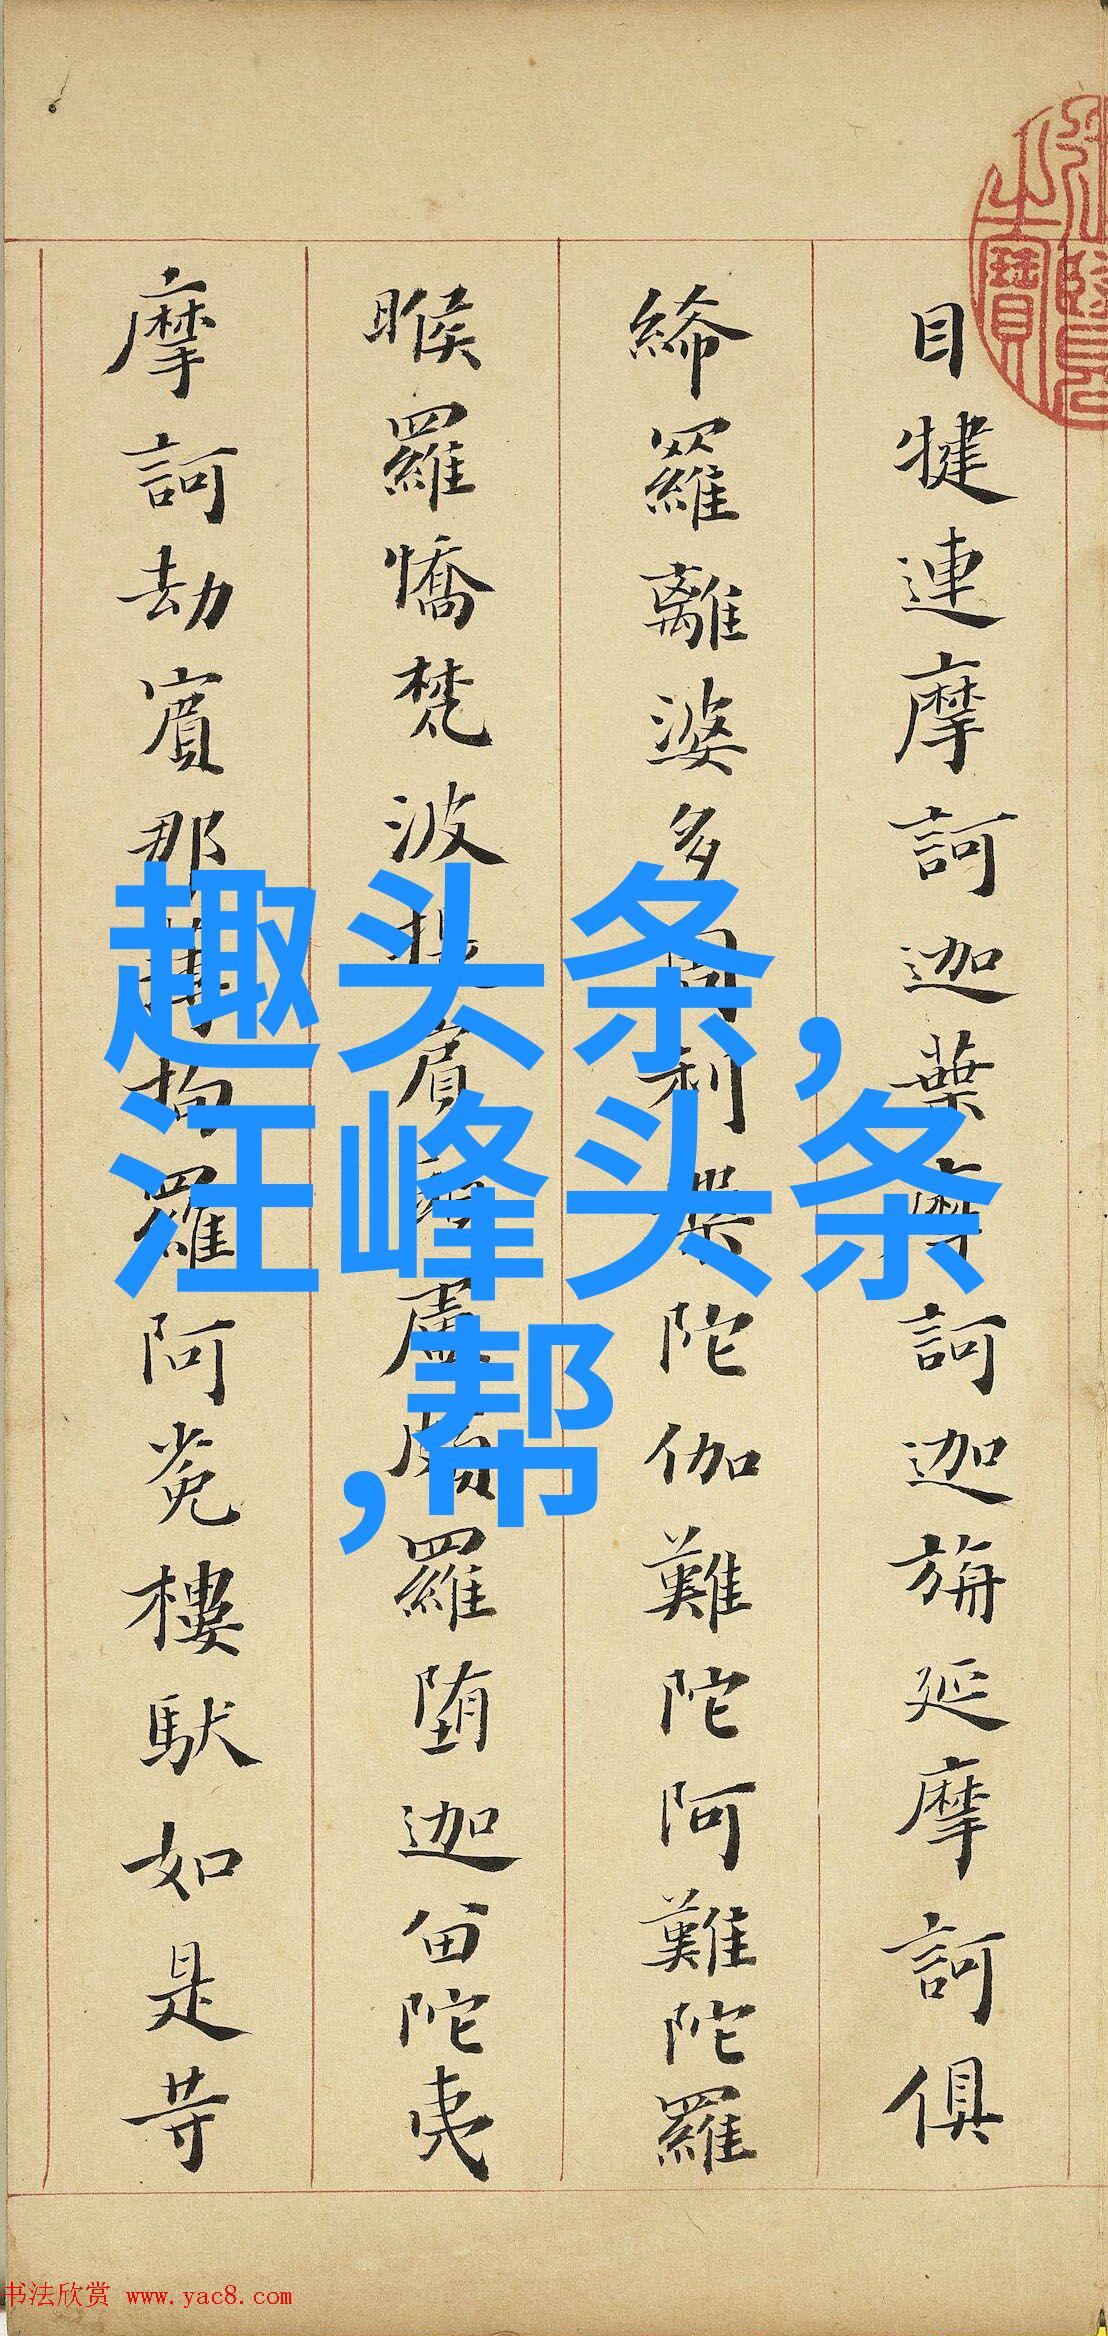 目犍連摩訶迦葉摩訶迦旃延摩訶俱
絺羅離婆多周利槃陀伽難陀阿難陀羅
睺羅憍梵波提賓頭盧頗羅堕迦留陀夷
摩訶劫賓那薄拘羅阿㝹樓馱如是等
趣头条,
汪峰头条
,帮
书法欣赏 www.yac8.com